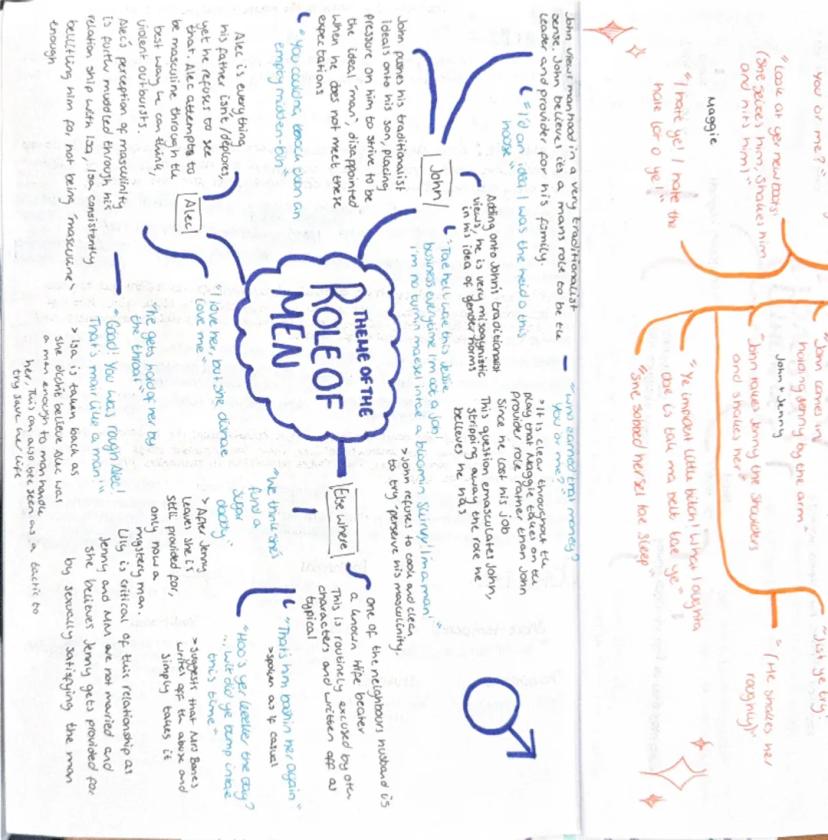 THEME OF THE
ROLE OF
MEN
John
John views manhood in a very traditionalist
sense. John believes its a mans role to be the
leader and provider for his family.
"I'd an idea I was the heid o this
hoose"
John pushes his traditionalist
ideals onto his son, placing
pressure on him to strive to be
the ideal "man", disappointed
when he does not meet these
expectations
"You couldna knock even an
empty midden-bin"
Adding onto John's traditionalist
views, he is very misogynistic
in his idea of gender norms
"Tae hell wi this Jessie
business everytime I'm oot a job
I'm no turnin masel intae a bloomin skivvy! I'm a man!"
> John refuses to cook and clean
to try preserve his masculinity.
"Who earned that money?
You or me?"
> It is clear throughout the
play that Maggie takes on the
Provider role rather than John
since he lost his job
This question emasculates John,
stripping away the role he
believes he has
Alec
Alec is everything
his father isn't/deplores,
yet he refuses to see
that. Alec attempts to
be masculine through the
best way he can think,
violent outbursts.
Alec's perception of masculinity
is further muddled through his
relationship with Isa. Isa consistently
belittling him for not being "masculine"
enough
"I love her, but she disnae
love me"
"He gets hold of her by
the throat"
"Good! You was rough Alec!
That's mair like a man!"
> Isa is taken back as
she didnt believe Alec was
a man enough to man handle
her. This can also be seen as a tactic to
try save her life
Else where
One of the neighbours husband is
a known wife beater
This is routinely excused by other
characters and written off as
typical
"That's him bashin her again"
> spoken as if casual
"Hoo's yer keeker the day?
... wit did ye bump intae
this time"
> Suggests that Mrs Bones
writes off the abuse and
simply takes it
"We think she's
fund a
sugar
daddy"
> After Jenny
leaves she is
still provided for,
only now a
mystery man.
Lily is critical of this relationship as
Jenny and Man are not married and
she believes Jenny gets provided for
by sexually satisfying the man
you or me?"
"Look at yer new boots!
(She seizes him, shakes him
and hits him)"
Maggie
"I hate ye! I hate the
hale lot o ye!"
"John comes in
holding Jenny by the arm"
John & Jenny
"John takes Jenny the shoulders
and shakes her"
"Ye impident little bitch! When I oughta
dae is tak ma belt tae ye"
"She sobbed hersel tae sleep"
"Jist ye try"
"(He shakes her
roughly)"